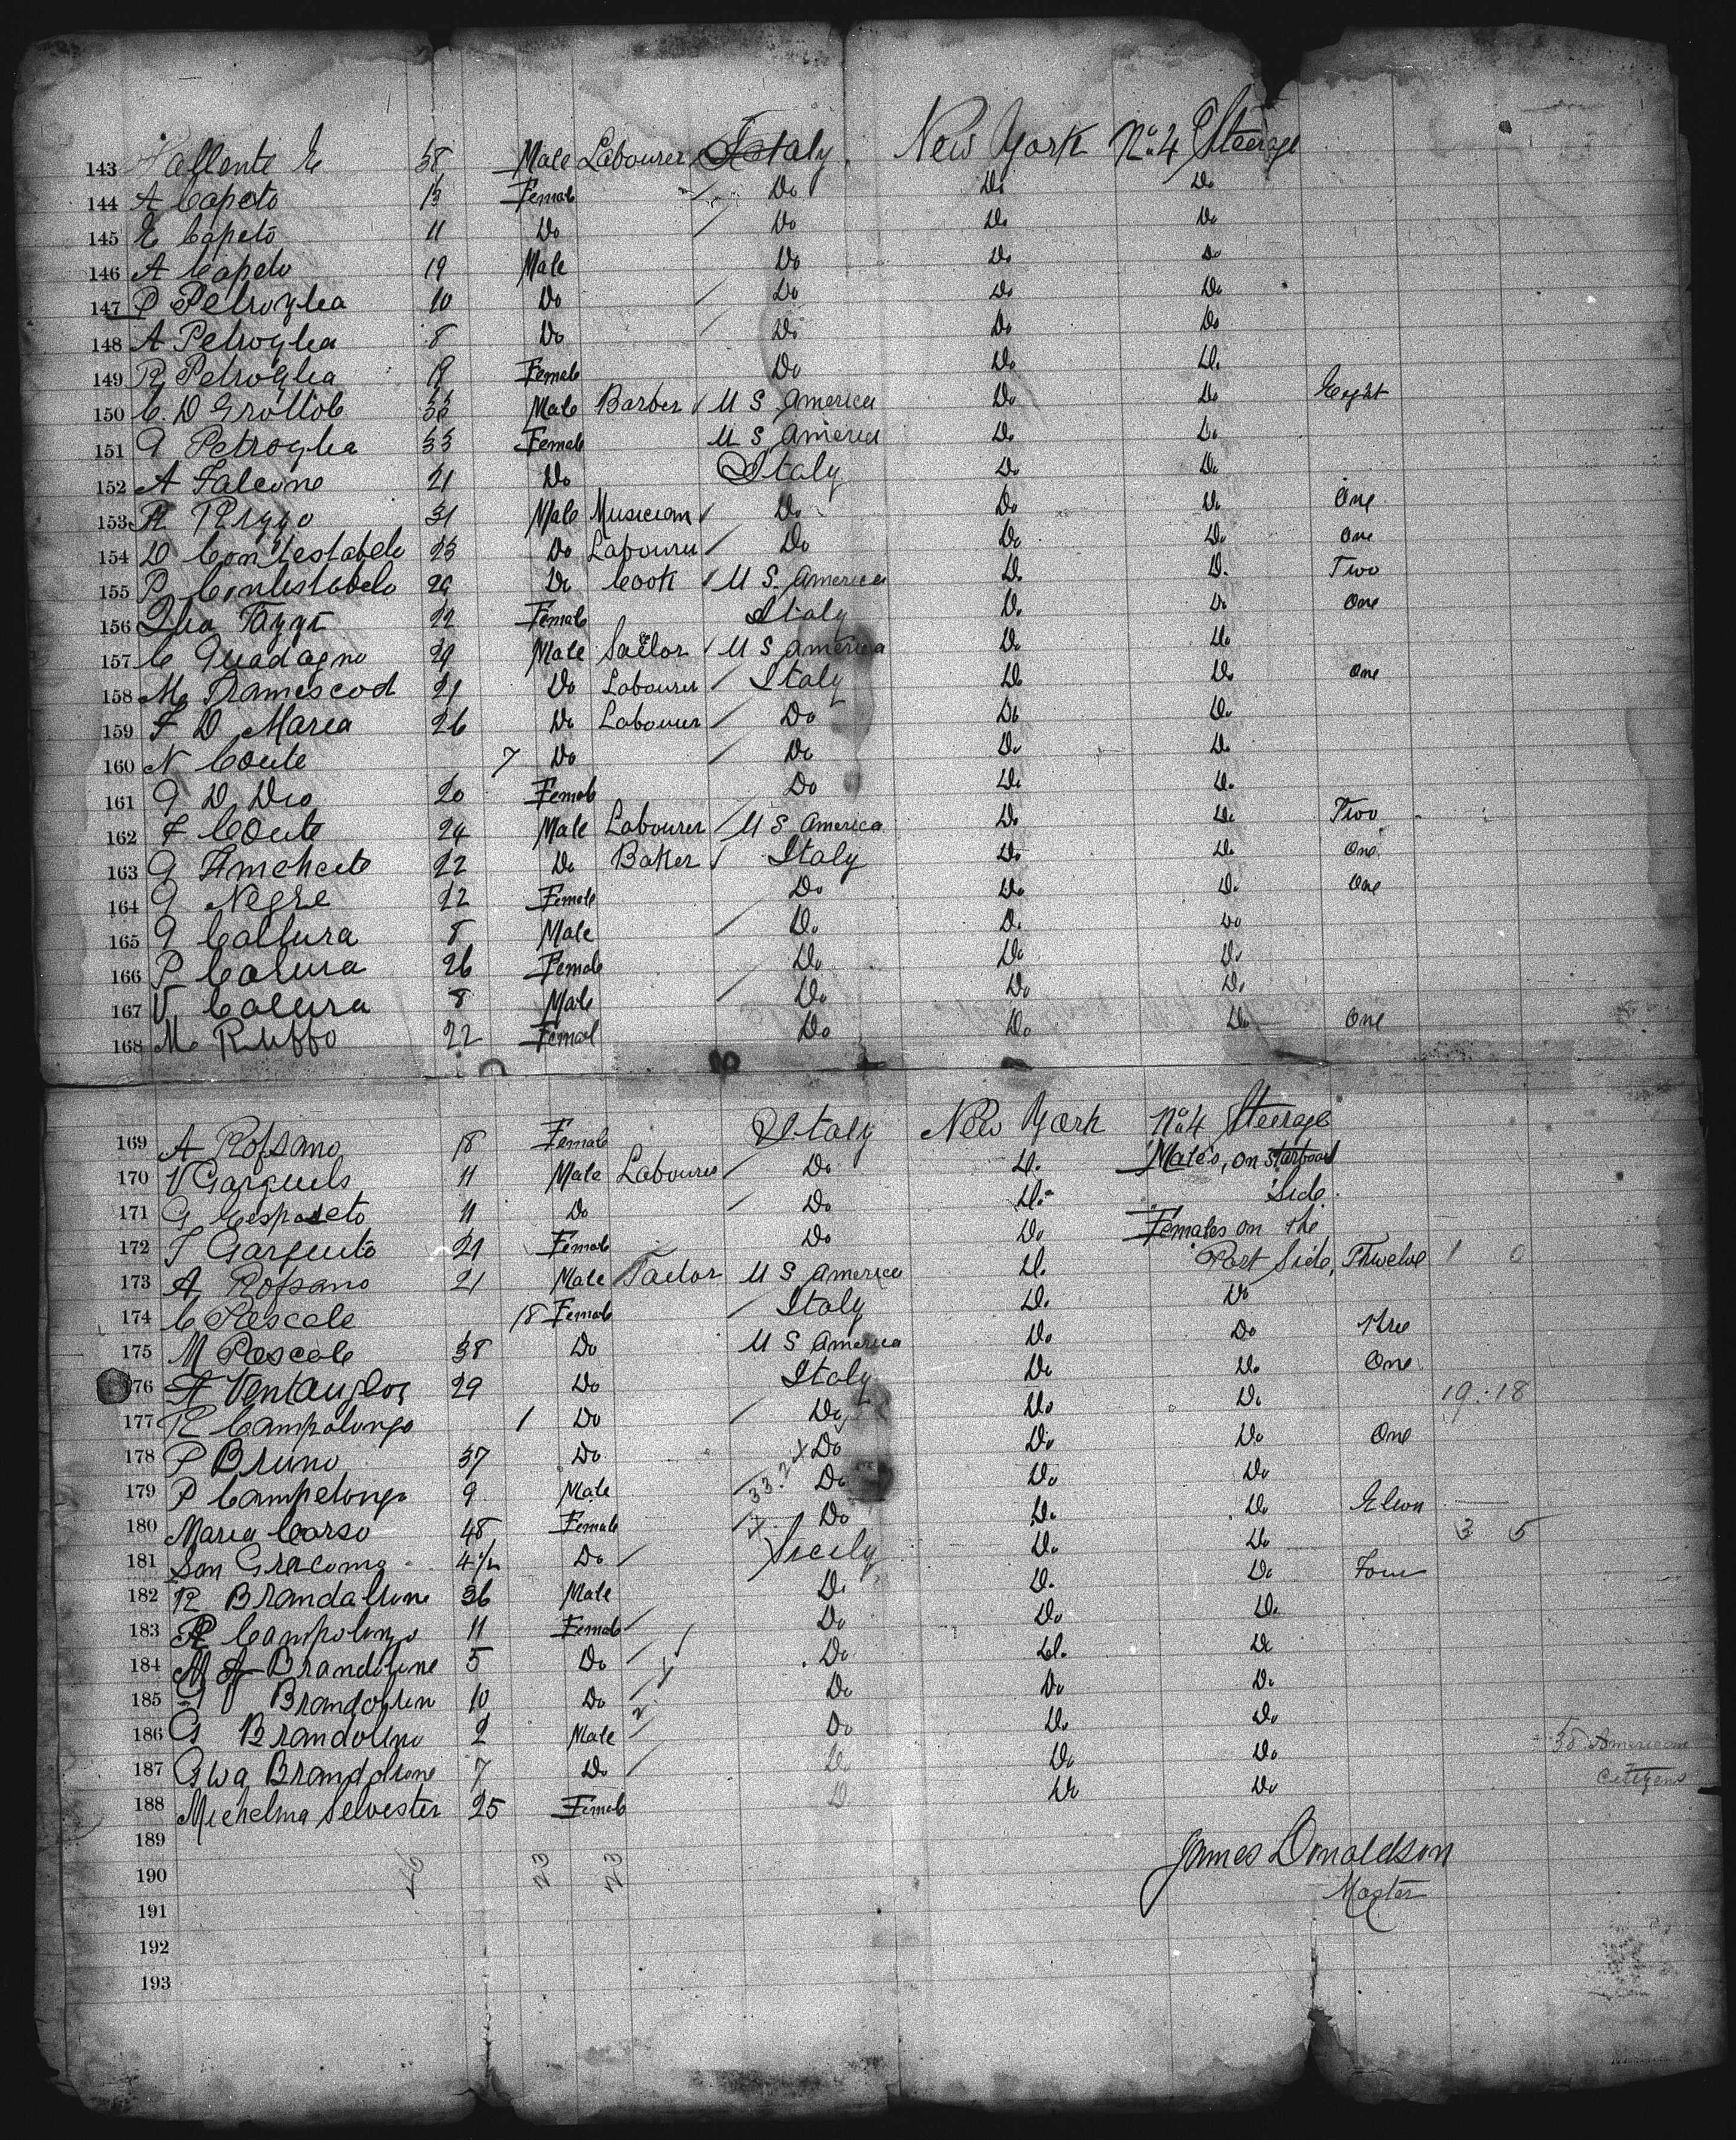 143 Vallente E 38 Male Labourer Italy New York No. 4 Steerage
144 A Capeto 13 Female Do Do Do
145 E Capeto 11 Do Do Do Do
146 A Capeto 19 Male Do Do Do
147 P Petroglia 10 Do Do Do Do
148 A Petroglia 8 Do Do Do Do
149 R Petroglia 19 Female Do Do Do
150 C. D Grottole Male Barber U S America Do Do Eight
151 G Petroglia 33 Female U S America Do Do
152 A Falcone 21 Do Italy Do Do
153 R Rizzo 31 Male Musician Do Do Do One
154 D Contestabele 23 Do Labourer Do Do Do One
155 P Contestabele Do Cook U S. America Do Do Two
156 Fazzi 22 Female Italy Do Do One
157 C Guadagno 29 Male Sailor U S America Do Do
158 M 21 Do Labourer Italy Do Do One
159 F D Maria 26 Do Labourer Do Do Do
160 N Conte 7 Do Do Do Do
161 G D Dio 20 Female Do Do Do
162 F Conte 24 Male Labourer U S America Do Do Two
163 G 22 Do Baker Italy Do Do One
164 G Negre 22 Female Do Do Do One
165 G Callura 8 Male Do Do Do
166 P Calura 26 Female Do Do Do
167 V Calura 8 Male Do Do Do
168 M Ruffo 22 Female Do Do Do One
169 A Rofsano 18 Female Italy New York No. 4 Steerage
170 V Garguels 11 Male Labourer Do Do Males, on Starboard
171 G Esposeto 11 Do Do Do Side.
172 T Garguito 21 Female Do Do Females on the
173 A Rofsano 21 Male Tailor U S America Do Port Side, Thwelve 1 0
174 C Pascale 18 Female Italy Do Do
175 M Pascale 38 Do U S America Do Do Three
176 A 29 Do Italy Do Do One
177 R Campolongo 1 Do Do Do Do 19 : 18
178 P Bruno 37 Do Do Do Do One
179 P Campelongo 9 Male Do Do Do
180 Maria Corso 48 Female Do Do Do Eleven
181 Son Giacomo 4 1/2 Do Sicily Do Do 3 5
182 R Brandaline 36 Male Do Do Do Four
183 R Campolongo 11 Female Do Do Do
184 M A Brandoline 5 Do Do Do Do
185 G V Brandolin 10 Do Do Do Do
186 G Brandolino 2 Male Do Do Do
187 Brandoline 7 Do Do Do Do
38 American
Citizens
188 Michelina Selvester 25 Female D Do Do
189
James Donaldson
190 46 23 23
Master
191
192
193